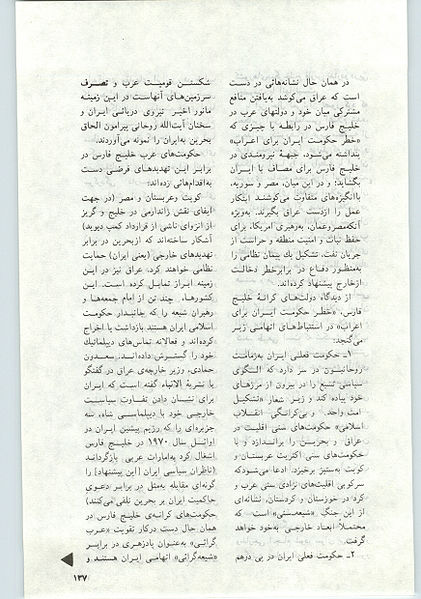 در همان حال نشانه‌هائی در دست
است که عراق می‌کوشد به‌یافتن منافع
مشترکی میان خود و دولتهای عرب در
خلیج فارس در رابطه با چیزی که
«خطر حکومت ایران برای اعراب»
پنداشته می‌شود، جبهۀ نیرومندی در
خلیج فارس برای مصاف با ایران
بگشاید؛ و در این میان، مصر و سوریه،
با انگیزه‌های متفاوت می‌کوشند ابتکار
عمل را ازدست عراق بگیرند. به‌ویژه
آنکه‌مصروعمان، به‌رهبری امریکا، برای
حفظ ثبات و امنیت منطقه و حراست از
جریان نفت، تشکیل یک پیمان نظامی را
به‌منظور دفاع در برابرخطر دخالت
ازخارج پیشنهاد کرده‌اند.
از دیدگاه دولت‌های کرانۀ خلیج
فارس، «خطر حکومت ایران برای
اعراب» در استنباطهای اتهامی زیر
می‌گنجد:
۱ـ حکومت فعلی ایران به‌زعامت
روحانیون در سر دارد که الگوی
سیاسی تشیع را در بیرون از مرزهای
خود پیاده کند و زیر شعار «تشکیل
امت واحد» و بی‌کرانگی انقلاب
اسلامی» حکومت‌های سنی اقلیت در
عراق و بحرین را براندازد و با
حکومت‌های سنی اکثریت عربستان و
کویت به‌ستیز برخیزد. ادعا می‌شودکه
سرکوبی اقلیت‌های نژادی سنی عرب و
کرد در خوزستان و کردستان، نشانه‌ای
از این جنگِ «شیعه‌سنی» است که
محتملاً ابعاد خارجی به‌خود خواهد
گرفت.
۲ـ حکومت فعلی ایران در پی درهم
شکستن قومیت عرب و تصرف
سرزمین‌های آنهاست در این زمینه
مانور اخیر نیروی دریائی ایران و
سخنان آیت‌الله روحانی پیرامون الحاق
بحرین به‌ایران را نمونه می‌آوردند.
حکومت‌های عرب خلیج فارس در
برابر این تهدیدهای فرضی دست
به‌اقدام‌هائی زده‌اند:
کویت وعربستان و مصر (در جهت
ایفای نقش ژاندارمی در خلیج و گریز
از انزوای ناشی از قرارداد کمپ دیوید)
آشکار ساخته‌اند که ازبحرین در برابر
تهدیدهای خارجی (یعنی ایران) حمایت
نظامی خواهند کرد. عراق نیز در این
زمینه ابراز تمایل کرده است. این
کشورها، چند تن از امام جمعه‌ها و
رهبران شیعه را که جانبدار حکومت
اسلامی ایران هستند بازداشت یا اخراج
کرده‌اند و فعالانه تماس‌های دیپلماتیک
خود را گسترش داده‌اند. سعدون
حمادی، وزیر خارجه‌ی عراق در گفتگو
با نشریۀ الانباء گفته است که ایران
برای نشان دادن تفاوت سیاست
خارجی خود با دیپلماسی شاه، سه
جزیره‌ای را که رژیم پیشین ایران در
اوائل سال ۱۹۷۰ در خلیج فارس
اشغال کرد به‌امارات عربی بازگرداند
(ناظران سیاسی ایران [این پیشنهاد] را
گونه‌ای مقابله به‌مثل در برابر دعوی
حاکمیت ایران بر بحرین تلقی می‌کنند)
حکومت‌های کرانه‌ی خلیج فارس در
همان حال دست درکار تقویت «عرب
گرائی» به‌عنوان پادزهری در برابر
«شیعه‌گرائی» اتهامی ایران هستند و
۱۳۷